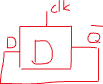 clk
D D Q̅